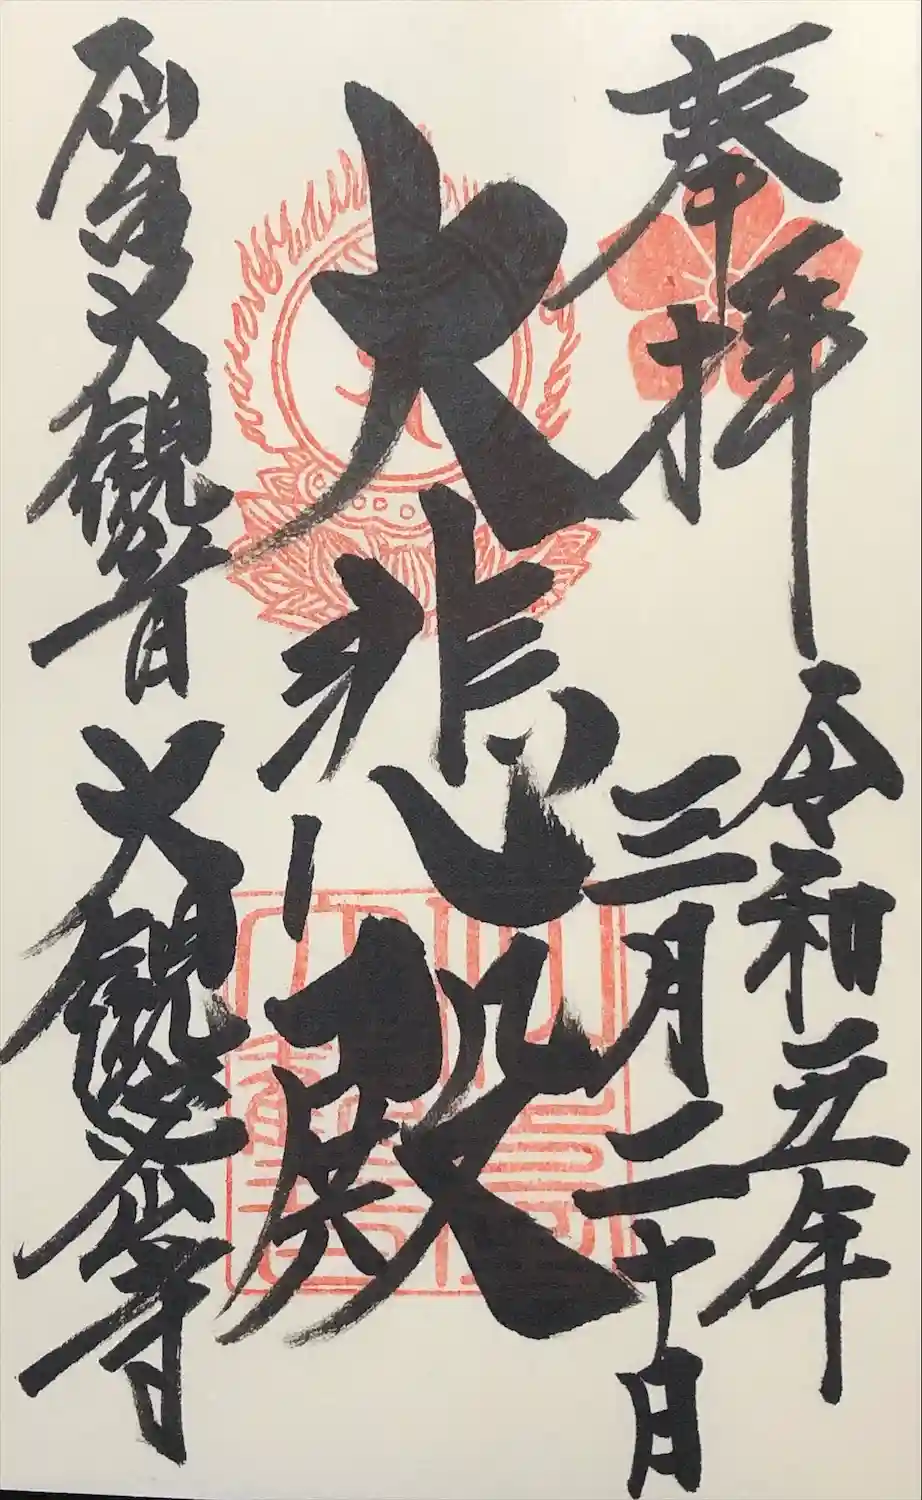 奉拝
令和五年
三月二十日
大悲殿
大観音
大観密寺